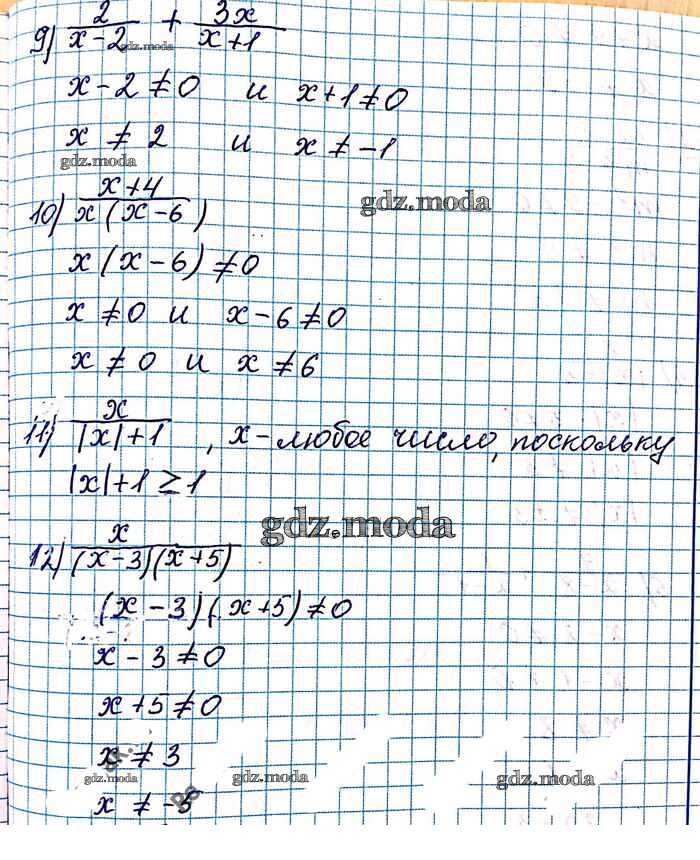 9) 2/(x-2) + 3x/(x+1)
gdz.moda
x - 2 ≠ 0 и x + 1 ≠ 0
x ≠ 2 и x ≠ -1
gdz.moda
10) (x+4)/(x(x-6))
gdz.moda
x(x-6) ≠ 0
x ≠ 0 и x - 6 ≠ 0
x ≠ 0 и x ≠ 6
11) x/(|x|+1), x - любое число, поскольку
|x|+1 ≥ 1
gdz.moda
12) x/((x-3)(x+5))
(x-3)(x+5) ≠ 0
x - 3 ≠ 0
x + 5 ≠ 0
x ≠ 3
gdz.moda gdz.moda gdz.moda
x ≠ -5